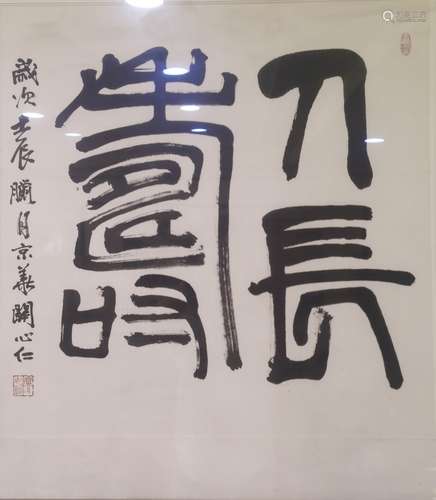 人長
壽
歲次壬辰臘月京華關心仁